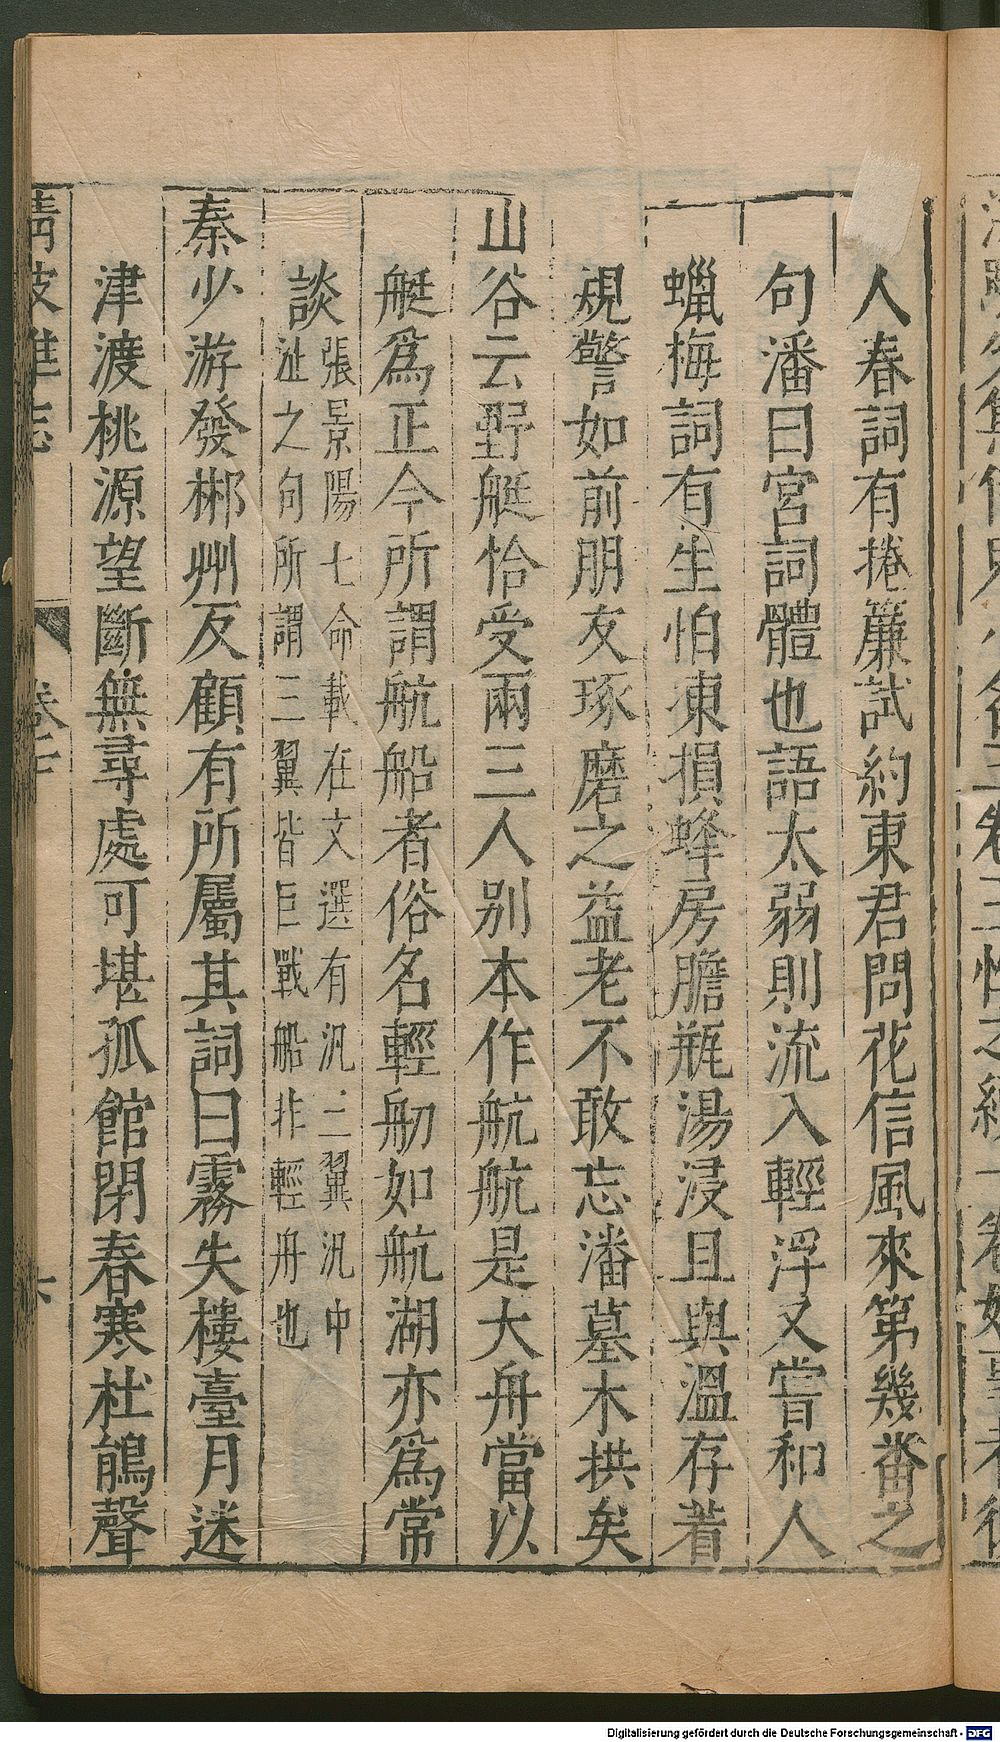 人春詞有捲簾試約東君問花信風來第幾畨之
句潘曰宮詞體也語太弱則流入輕浮又嘗和人
蠟梅詞有生怕凍損蜂房膽瓶湯浸且與溫存着
規警如前朋友琢磨之益老不敢忘潘墓木拱矣
山谷云野艇恰受兩三人别本作航航是大舟當以
艇爲正今所謂航船者俗名輕舠如航湖亦爲常
談
張景陽七命載在文選有汎三翼汎中
沚之句所謂三翼皆巨戰船非輕舟也
秦少游發郴州反顧有所屬其詞曰霧失樓臺月迷
津渡桃源望斷無尋處可堪孤館閉春寒杜鵑聲
清波雜志
卷
六
Digitalisierung gefördert durch die Deutsche Forschungsgemeinschaft - DFG